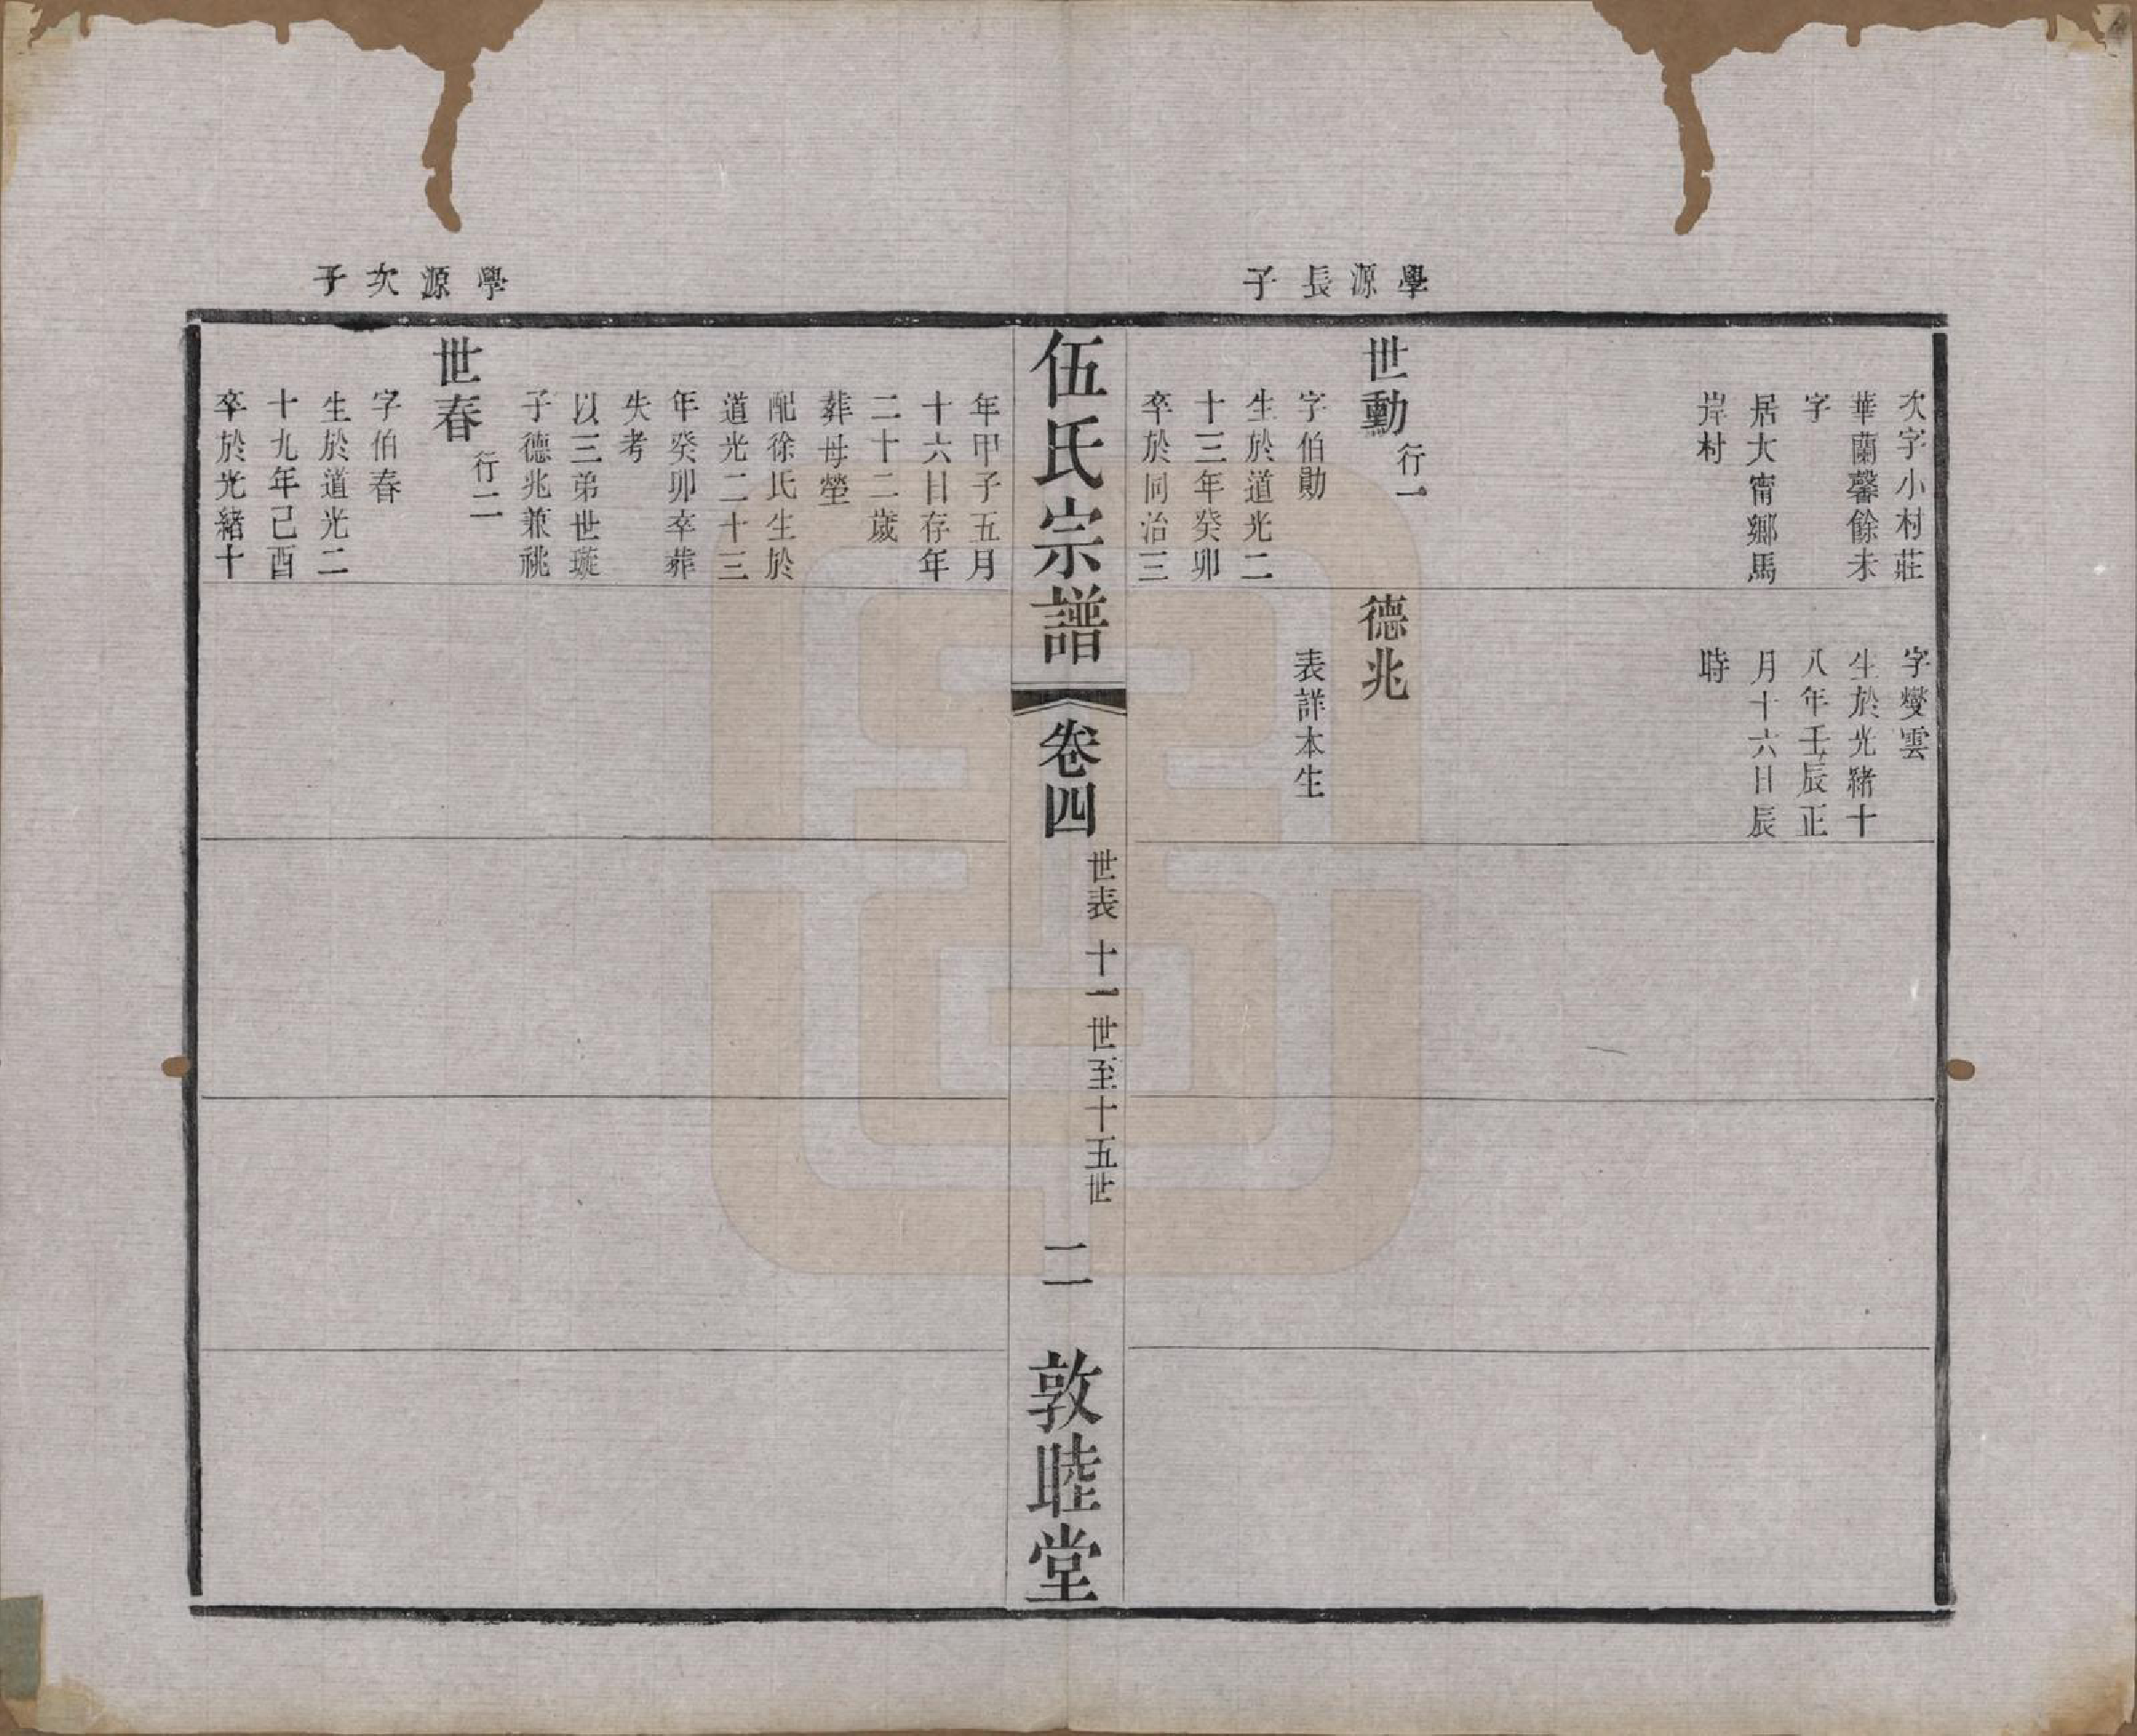 學源長子
次字小村莊
華蘭馨餘未
字
居大甯鄉馬
岸村
字燮雲
生於光緒十
八年壬辰正
月十六日辰
時
世勳 行一
字伯勛
生於道光二
十三年癸卯
卒於同治三
德兆
表詳本生
伍氏宗譜
卷四
世表 十一世至十五世
二
敦睦堂
學源次子
年甲子五月
十六日存年
二十二歲
葬母塋
配徐氏生於
道光二十三
年癸卯卒葬
失考
以三弟世璇
子德兆兼祧
世春 行二
字伯春
生於道光二
十九年己酉
卒於光緒十